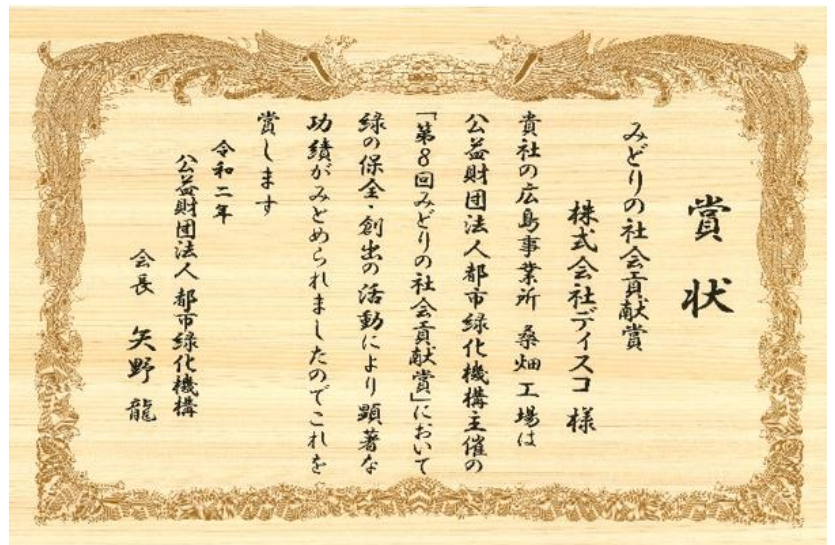 賞状
みどりの社会貢献賞
株式会社ディスコ 様
貴社の広島事業所 桑畑工場は
公益財団法人都市緑化機構主催の
「第8回みどりの社会貢献賞」において
緑の保全・創出の活動により顕著な
功績がみとめられましたのでこれを
賞します
令和二年
公益財団法人都市緑化機構
会長 矢野 龍